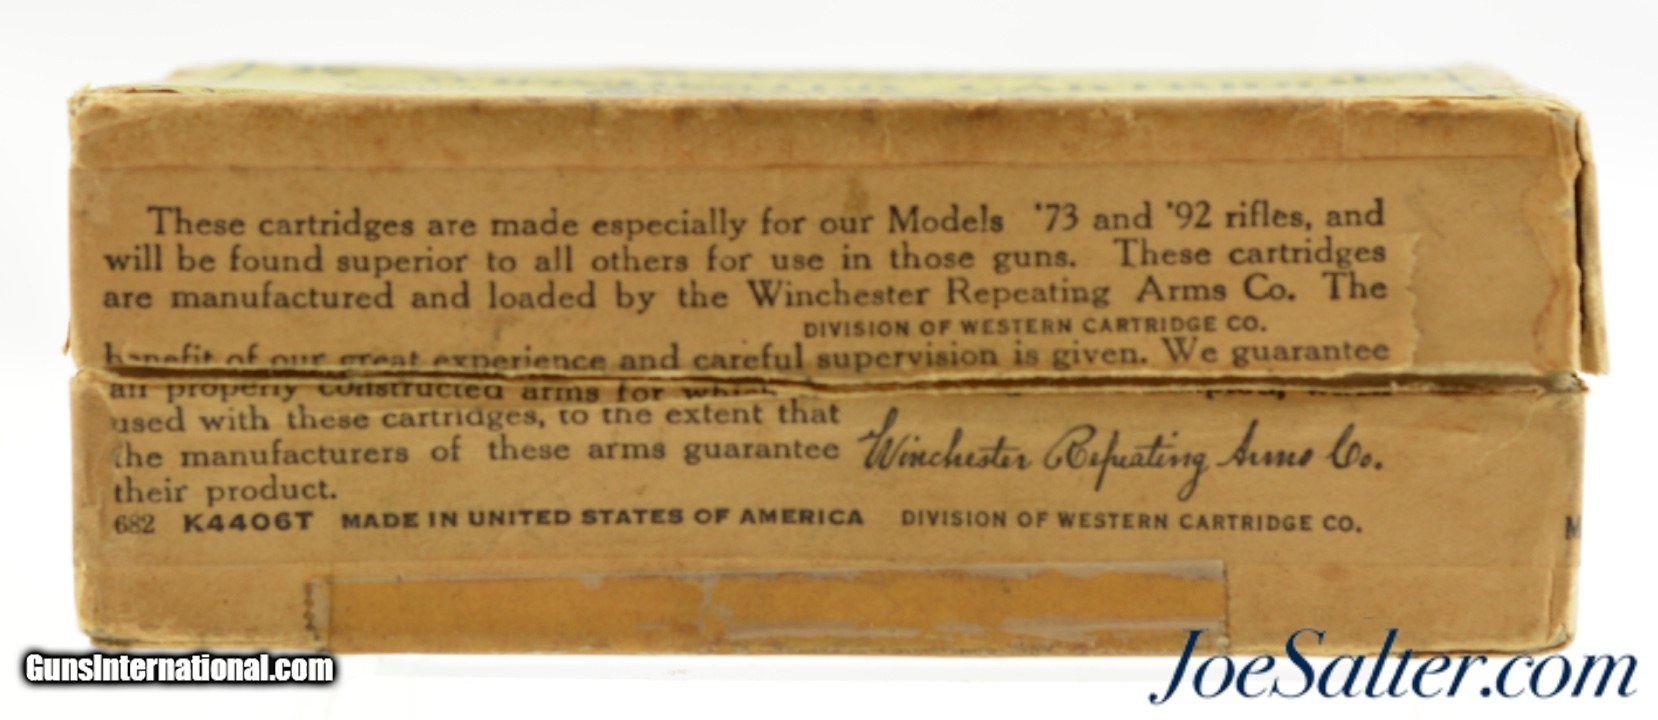 These cartridges are made especially for our Models '73 and '92 rifles, and
will be found superior to all others for use in those guns. These cartridges
are manufactured and loaded by the Winchester Repeating Arms Co. The
DIVISION OF WESTERN CARTRIDGE CO.
benefit of our great experience and careful supervision is given. We guarantee
all properly constructed arms for which
used with these cartridges, to the extent that
the manufacturers of these arms guarantee
their product.
Winchester Repeating Arms Co.
682 K4406T MADE IN UNITED STATES OF AMERICA DIVISION OF WESTERN CARTRIDGE CO.
M
GunsInternational.com
JoeSalter.com